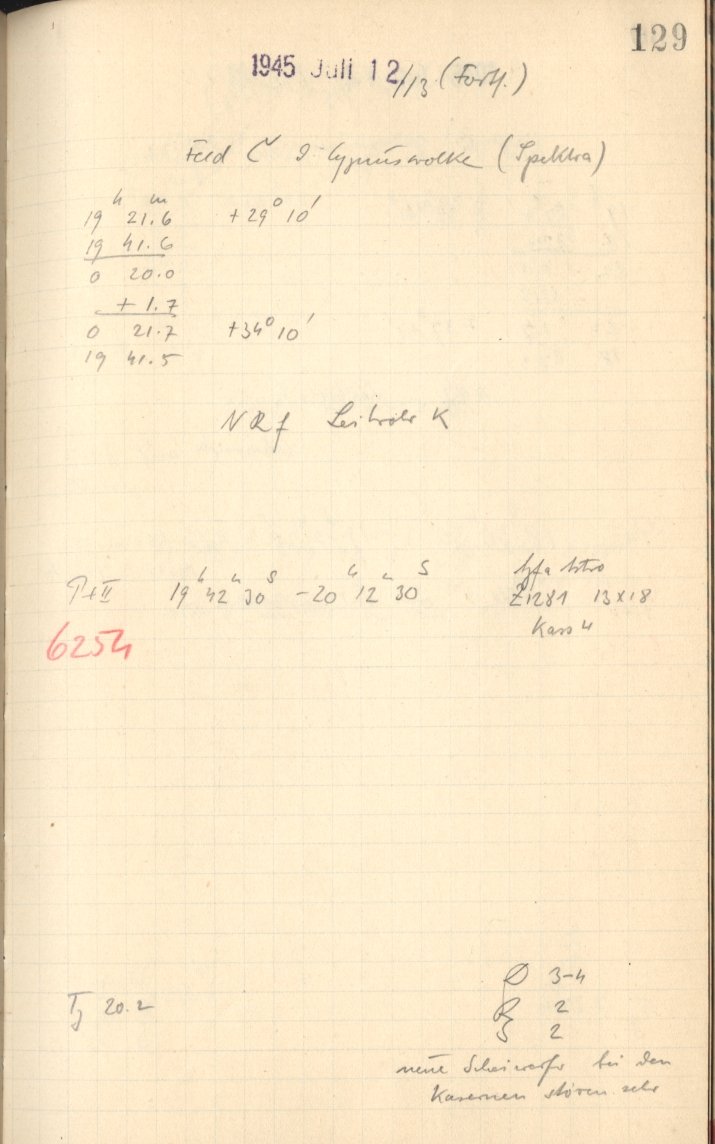 129
1945 Juli 12/13 (Forts.)
Feld C 9 Cygnuswolke (Spektra)
h m
19 21.6 +29° 10'
19 41.6
0 20.0
+ 1.7
0 21.7 +34° 10'
19 41.5
NRf Leitrohr K
P+II 19h 42m 30s - 20h 12m 30s Agfa Astro
6254 Z1281 13x18
Kass 4
3-4
T 20.2 R 2
S 2
neue Scheinwerfer bei den
Kasernen stören sehr